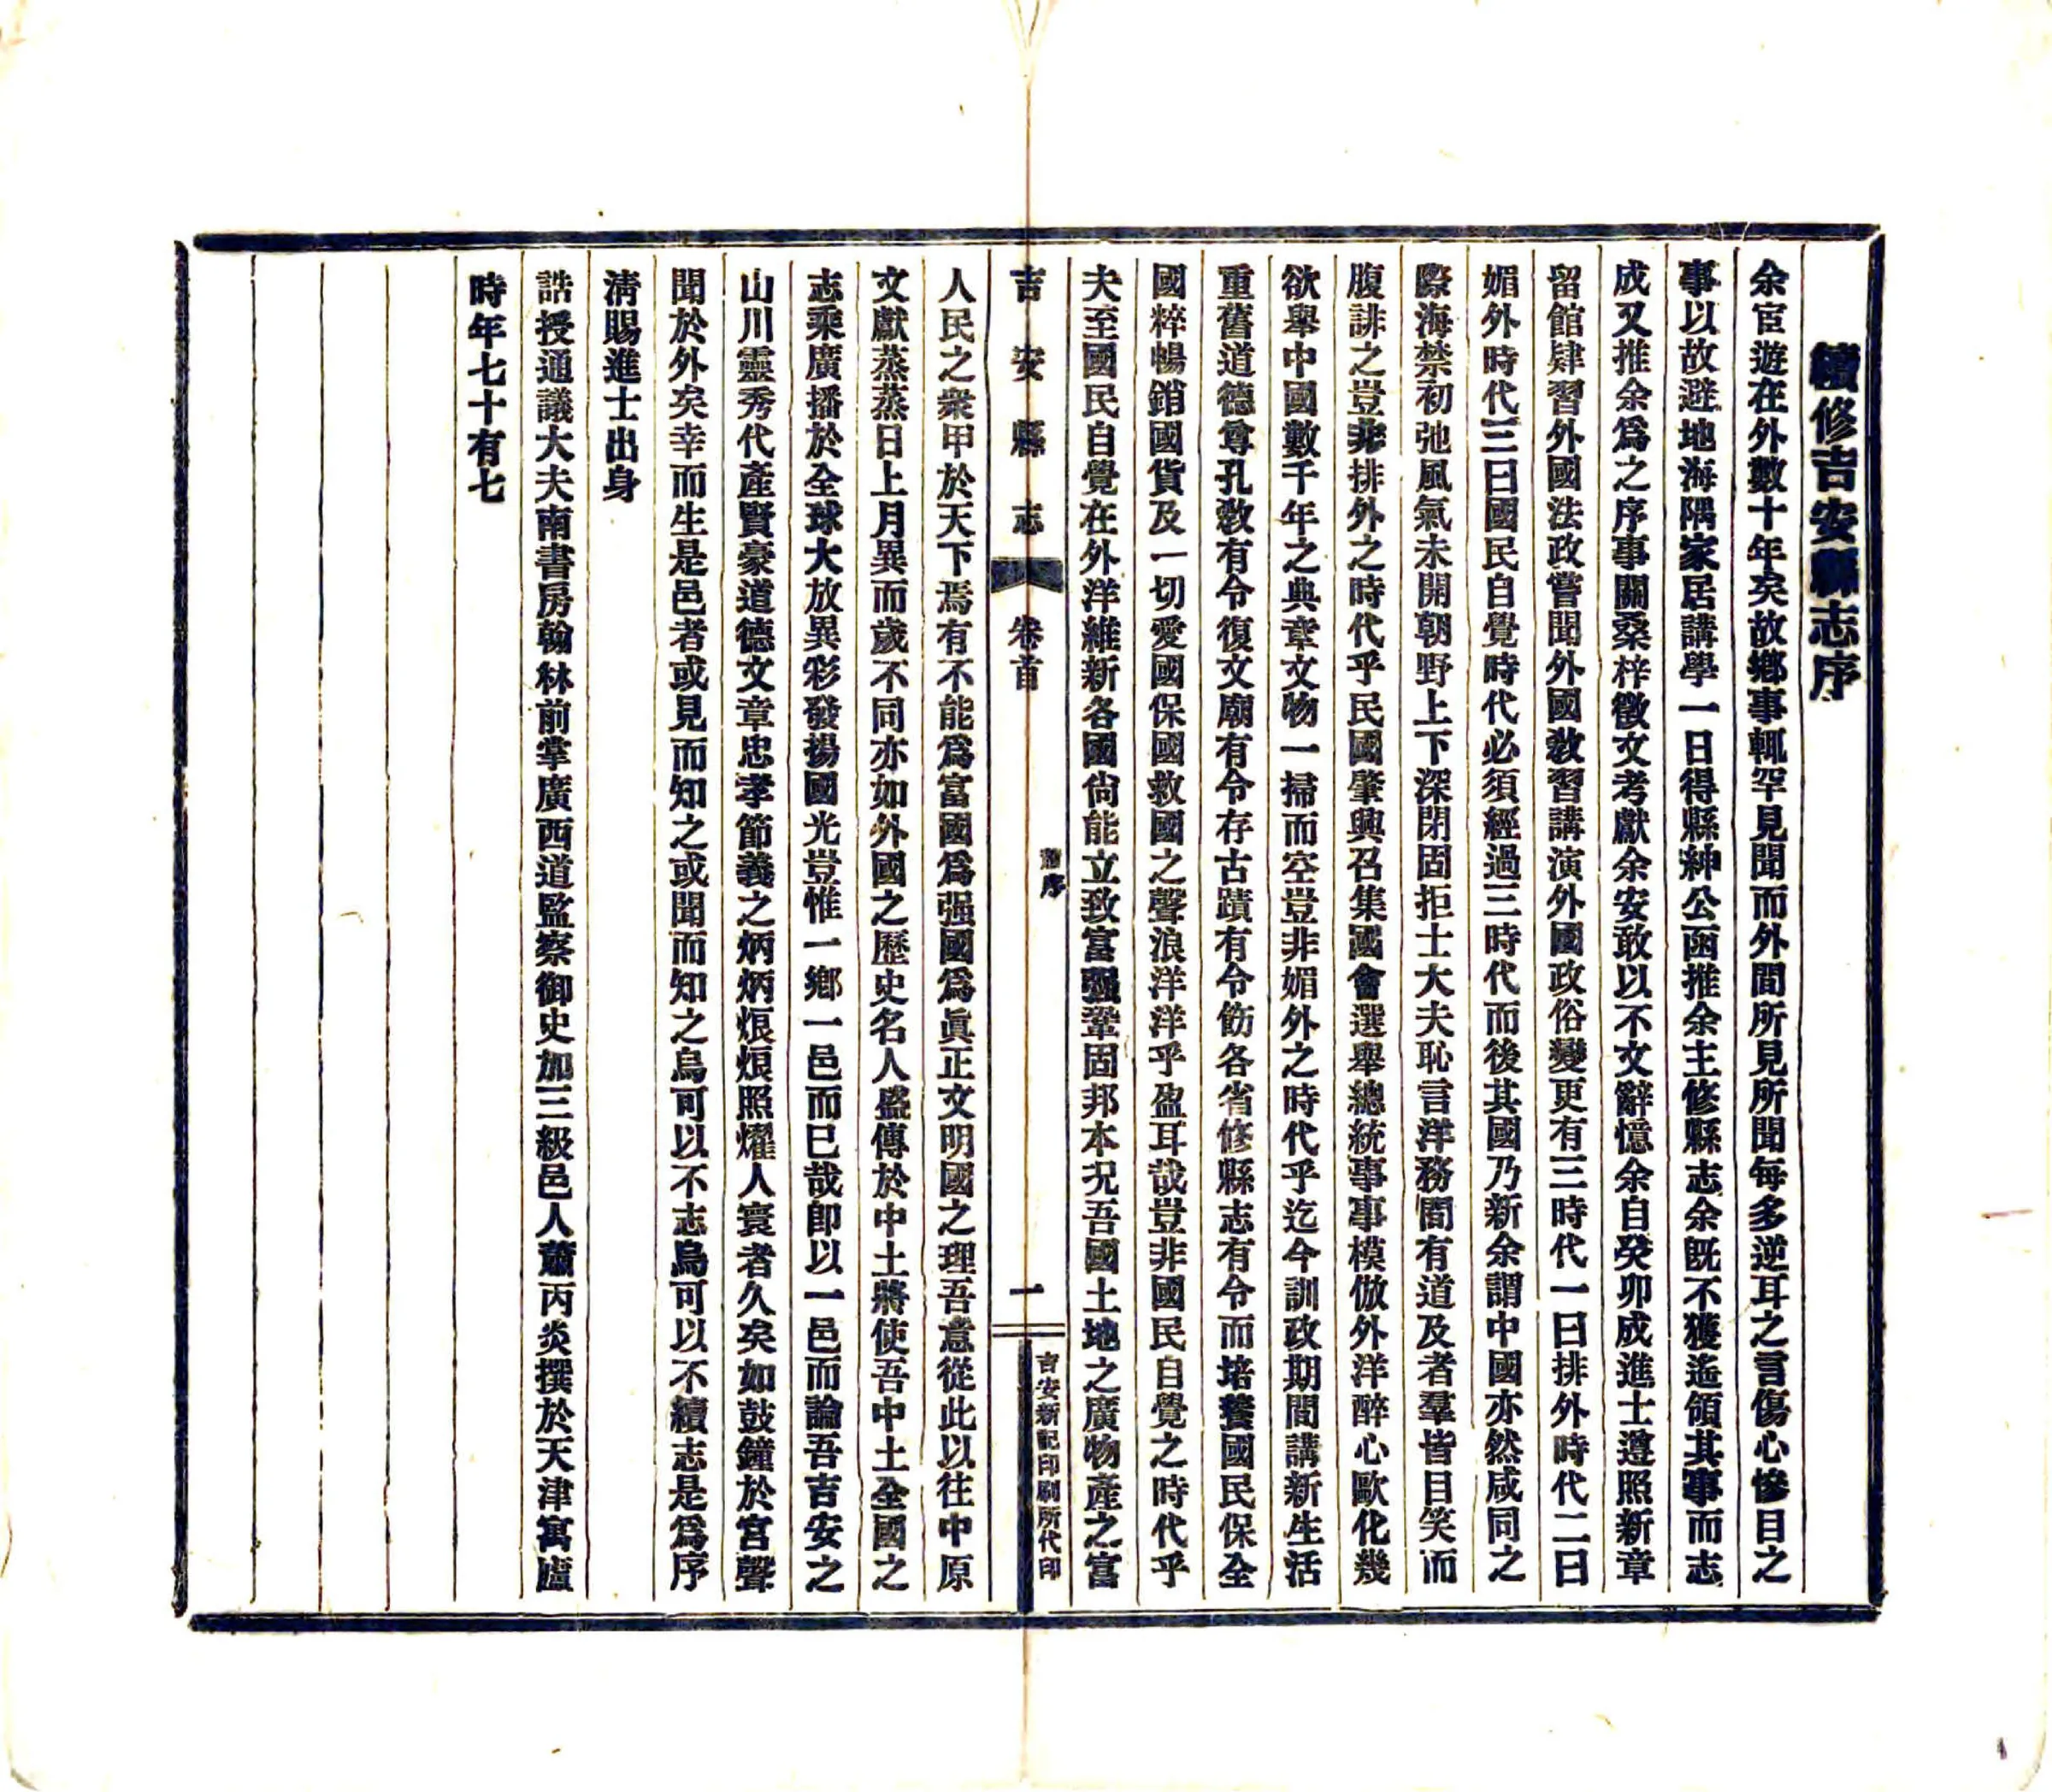 續修吉安縣志序
余宦遊在外數十年矣故鄉事輒罕見聞而外間所見所聞每多逆耳之言傷心慘目之
事以故避地海隅家居講學一日得縣紳公函推余主修縣志余既不獲遙領其事而志
成又推余爲之序事關桑梓徵文考獻余安敢以不文辭憶余自癸卯成進士遵照新章
留館肄習外國法政嘗聞外國敎習講演外國政俗變更有三時代一曰排外時代二曰
媚外時代三曰國民自覺時代必須經過三時代而後其國乃新余謂中國亦然咸同之
際海禁初弛風氣未開朝野上下深閉固拒士大夫恥言洋務間有道及者羣皆目笑而
腹誹之豈非排外之時代乎民國肇興召集國會選舉總統事事模倣外洋醉心歐化幾
欲舉中國數千年之典章文物一掃而空豈非媚外之時代乎迄今訓政期間講新生活
重舊道德尊孔敎有令復文廟有令存古蹟有令飭各省修縣志有令而培養國民保全
國粹暢銷國貨及一切愛國保國救國之聲浪洋洋乎盈耳哉豈非國民自覺之時代乎
夫至國民自覺在外洋維新各國尙能立致富强鞏固邦本况吾國土地之廣物產之富
吉安縣志 卷首 序 一 吉安新記印刷所代印
人民之衆甲於天下焉有不能爲富國爲强國爲眞正文明國之理吾意從此以往中原
文獻蒸蒸日上月異而歲不同亦如外國之歷史名人盛傳於中土將使吾中土全國之
志乘廣播於全球大放異彩發揚國光豈惟一鄉一邑而已哉卽以一邑而論吾吉安之
山川靈秀代產賢豪道德文章忠孝節義之炳炳烺烺照燿人寰者久矣如鼓鐘於宮聲
聞於外矣幸而生是邑者或見而知之或聞而知之烏可以不志烏可以不續志是爲序
淸賜進士出身
誥授通議大夫南書房翰林前掌廣西道監察御史加三級邑人蕭丙炎撰於天津寓廬
時年七十有七